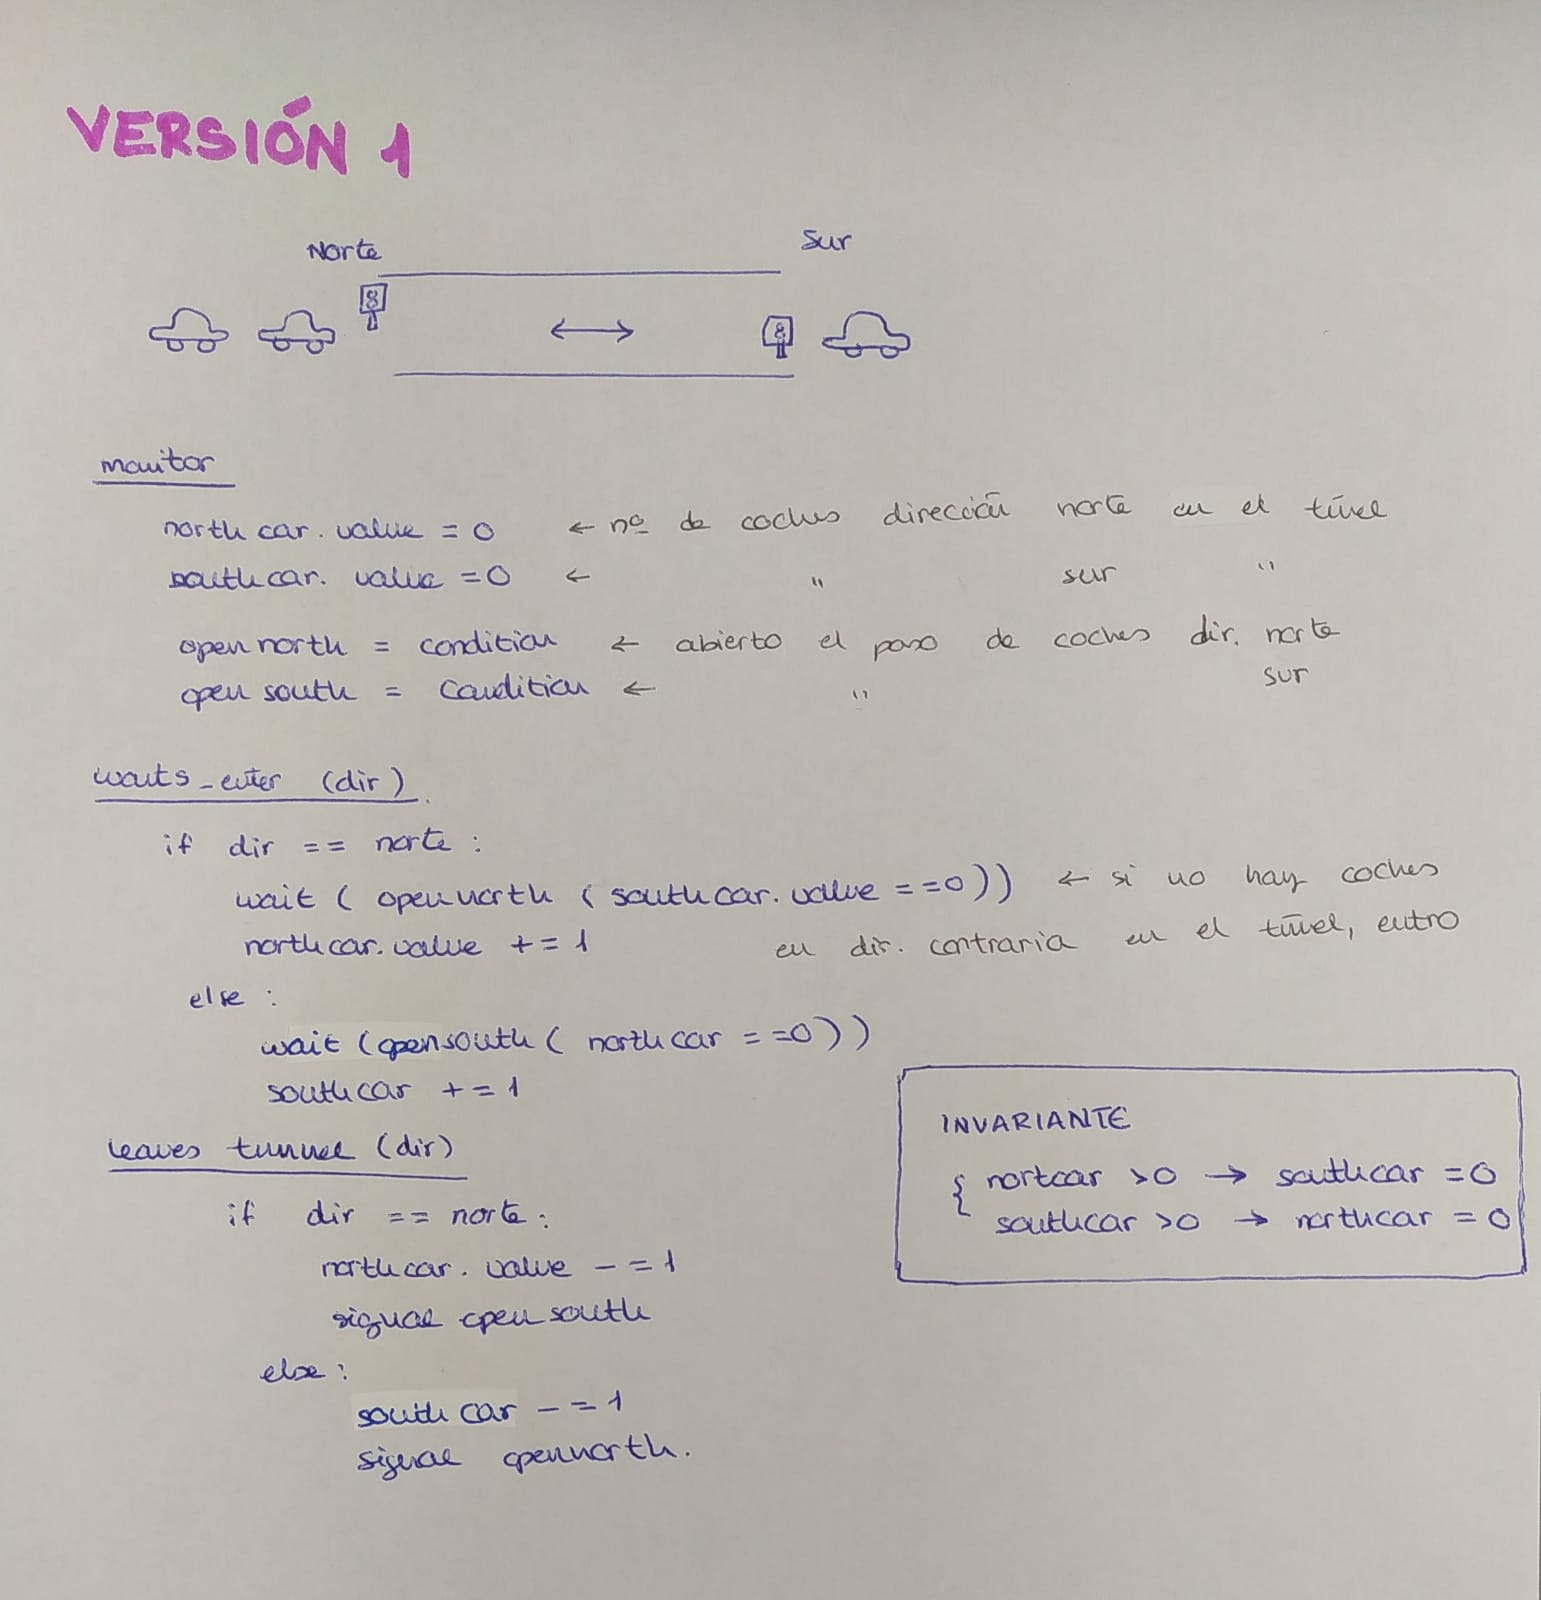 VERSIÓN 1
Norte Sur
monitor
north car. value = 0 ← nº de coches dirección norte en el túnel
southcar. value = 0 ← " sur "
open north = condition ← abierto el paso de coches dir. norte
open south = Condition ← " sur
waits_enter (dir)
if dir == norte :
wait ( opennorth ( southcar. value ==0)) ← si no hay coches
northcar. value += 1 en dir. contraria en el túnel, entro
else :
wait (opensouth ( northcar ==0))
southcar += 1
leaves tunnel (dir)
if dir == norte :
northcar. value -= 1
signal open south
else :
south car -= 1
signal opennorth.
INVARIANTE
{ nortcar >0 → southcar =0
southcar >0 → northcar = 0